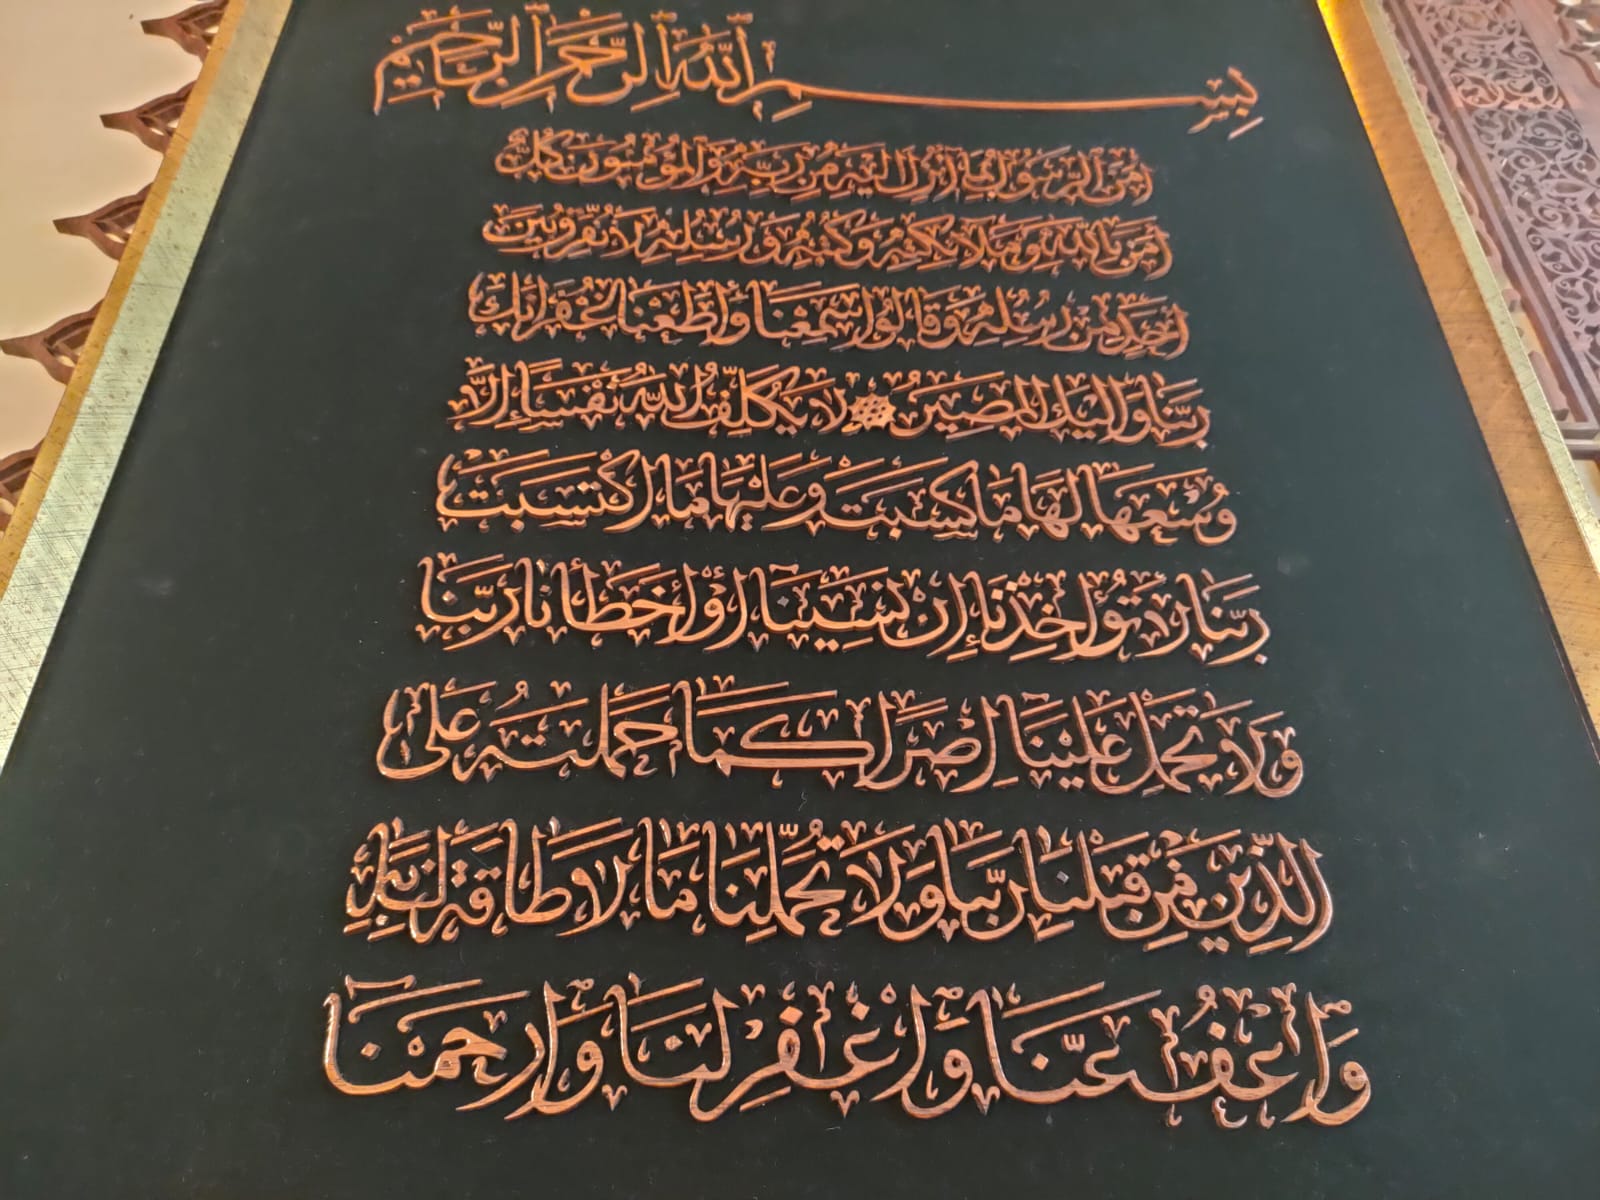 بِسْمِ اللَّهِ الرَّحْمَٰنِ الرَّحِيمِ
آمَنَ الرَّسُولُ بِمَا أُنْزِلَ إِلَيْهِ مِنْ رَبِّهِ وَالْمُؤْمِنُونَ كُلٌّ
آمَنَ بِاللَّهِ وَمَلَائِكَتِهِ وَكُتُبِهِ وَرُسُلِهِ لَا نُفَرِّقُ بَيْنَ
أَحَدٍ مِنْ رُسُلِهِ وَقَالُوا سَمِعْنَا وَأَطَعْنَا غُفْرَانَكَ
رَبَّنَا وَإِلَيْكَ الْمَصِيرُ لَا يُكَلِّفُ اللَّهُ نَفْسًا إِلَّا
وُسْعَهَا لَهَا مَا كَسَبَتْ وَعَلَيْهَا مَا اكْتَسَبَتْ
رَبَّنَا لَا تُؤَاخِذْنَا إِنْ نَسِينَا أَوْ أَخْطَأْنَا رَبَّنَا
وَلَا تَحْمِلْ عَلَيْنَا إِصْرًا كَمَا حَمَلْتَهُ عَلَى
الَّذِينَ مِنْ قَبْلِنَا رَبَّنَا وَلَا تُحَمِّلْنَا مَا لَا طَاقَةَ لَنَا بِهِ
وَاعْفُ عَنَّا وَاغْفِرْ لَنَا وَارْحَمْنَا